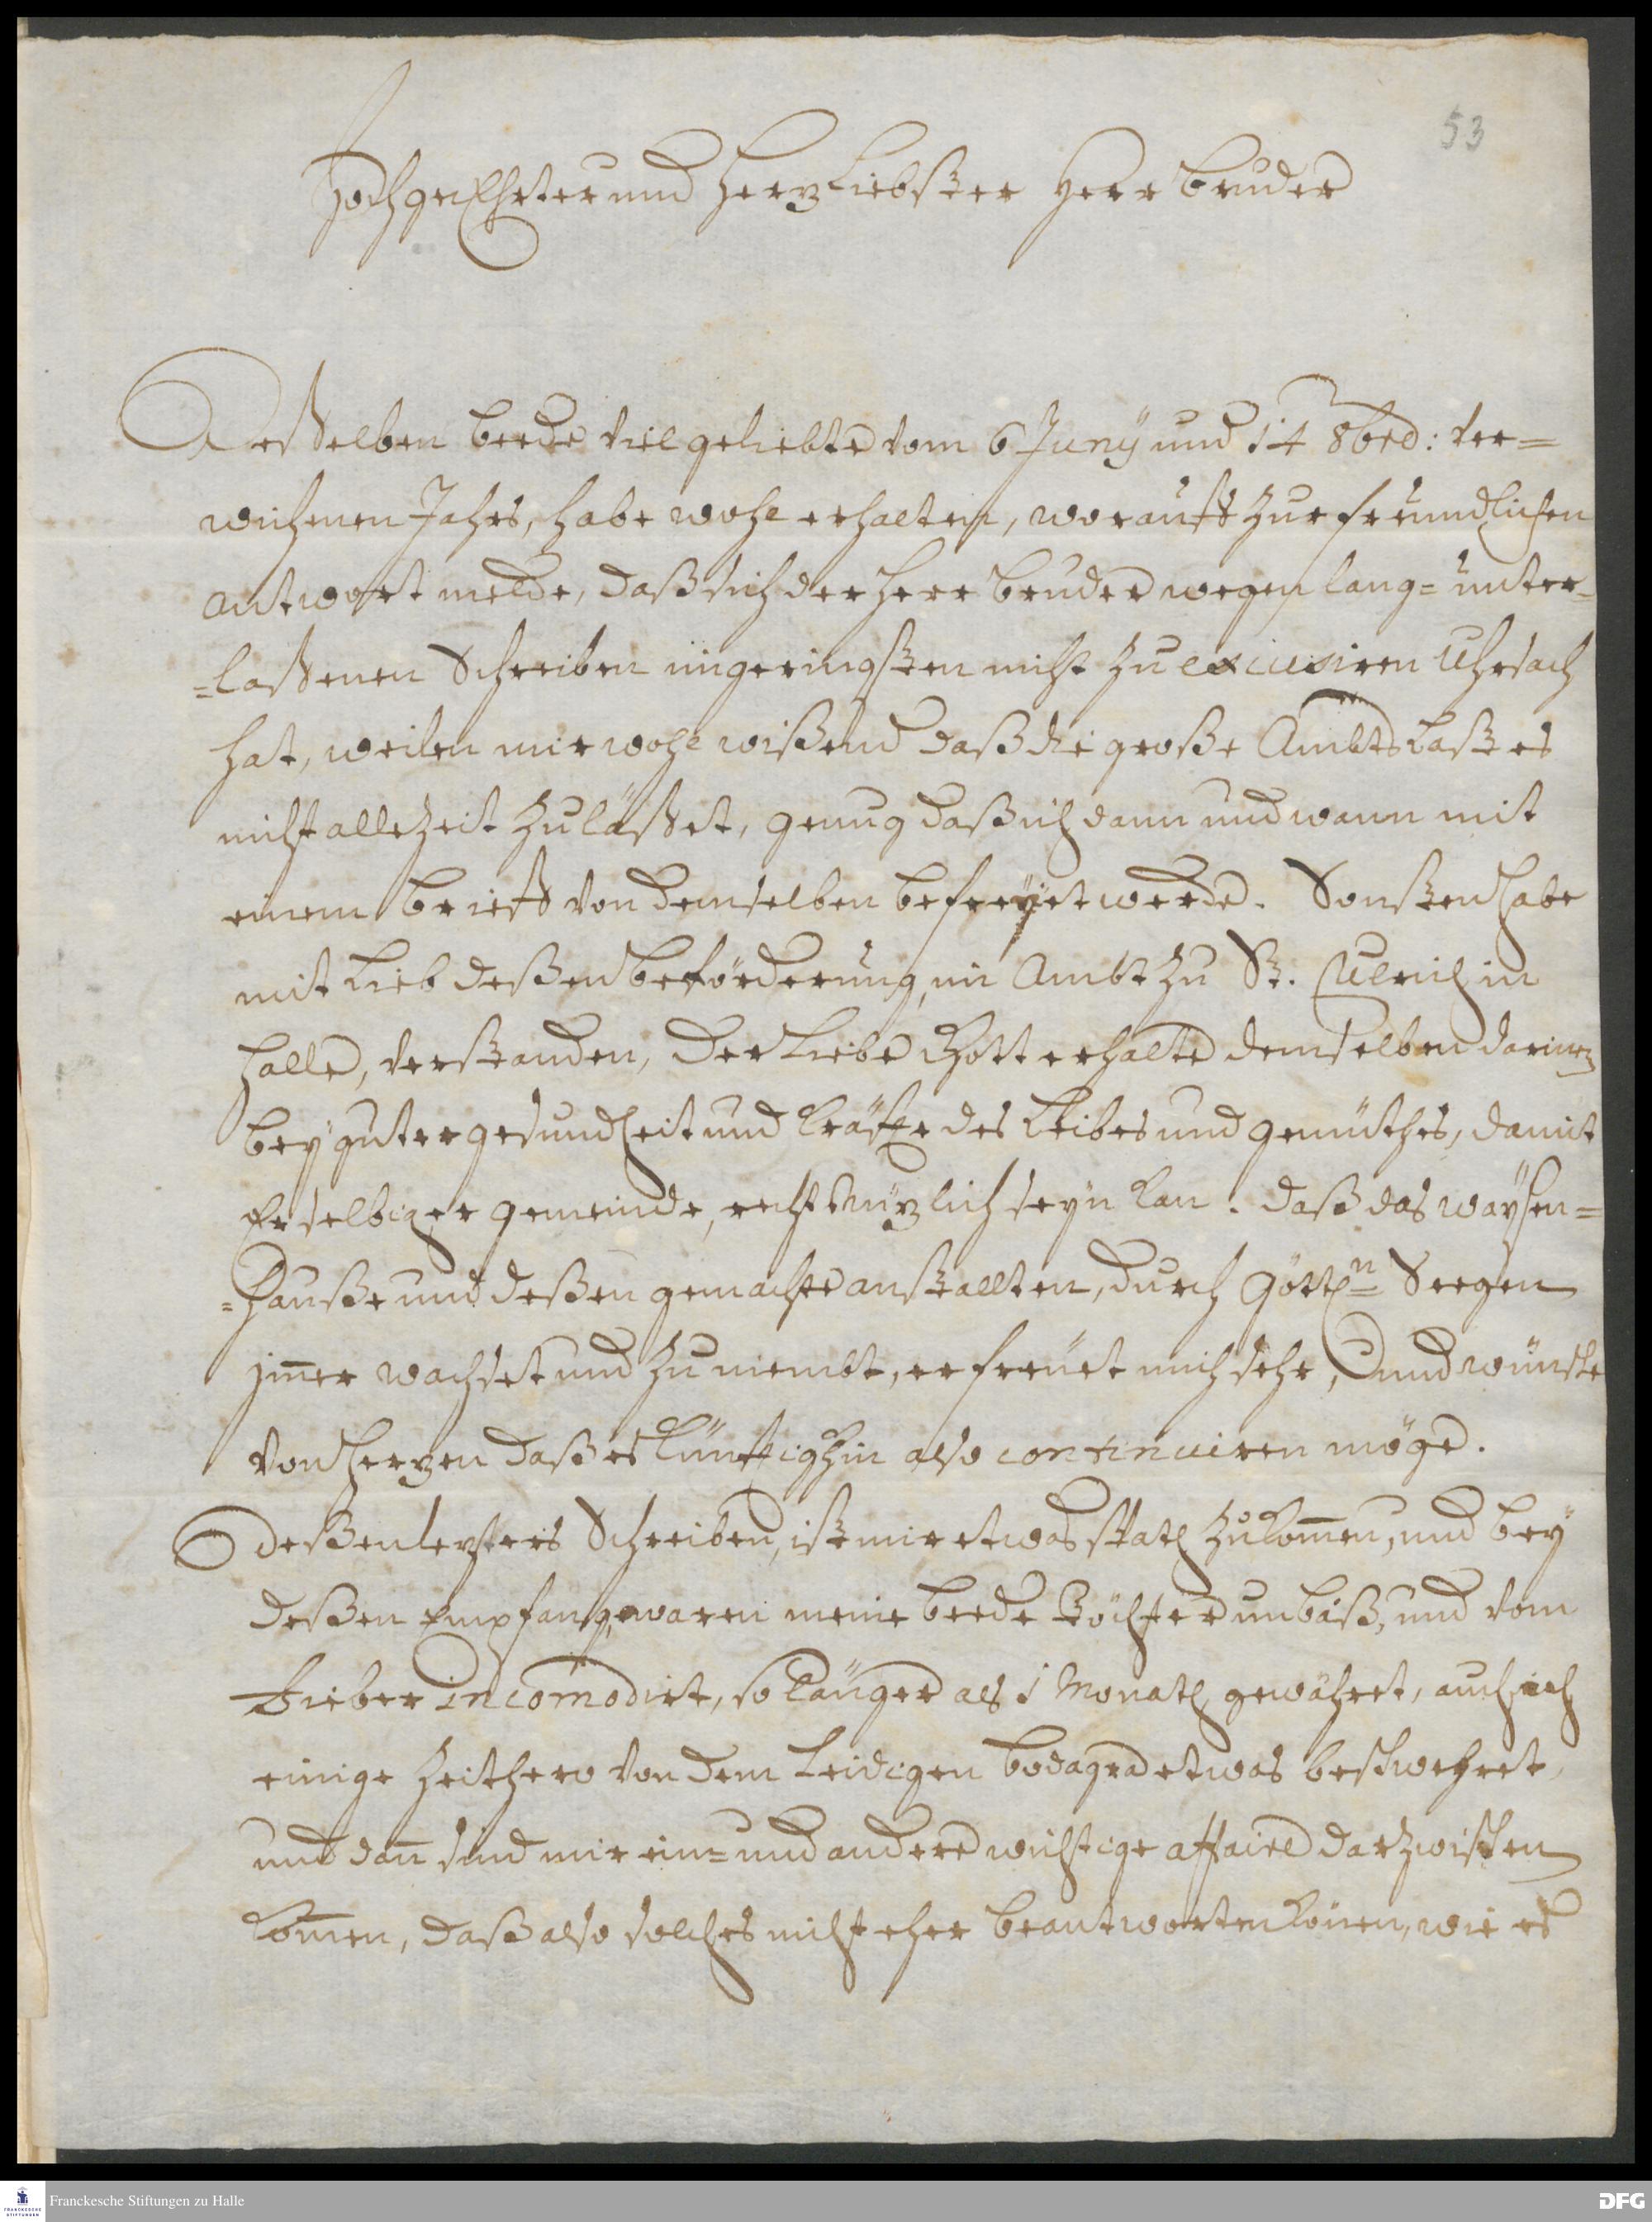 53
HochgeEhrter und HerzLiebster Herr Bruder
Deßelben beede Vielgeliebte vom 6 Junÿ und 14 8bre: ver=
wichenen Jahrs, habe wohl erhalten, worauff zur freundlichen
antwort melde, daß sich der Herr Bruder wegen lang= unter=
=laßenen Schreiben im geringsten nicht zu excusiren Uhrsach
hat, weilen mir wohl wißend daß die große Ambts Last es
nicht allezeit zuläßet, genug daß ich dann und wann mit
einem brieff von demselben erfreÿet werde. Sonsten habe
mit Lieb deßen beförderung, im Ambt zu St. Ulrich in
Halle, verstanden, Der Liebe Gott erhalte demselben darinn
beÿ guter gesundheit und kräffte des Leibes und gemüthes, damit
Er selbiger gemeinde, recht Nüzlich seÿn kan. daß das waÿsen=
=Hauße und deßen gemachte anstallten, durch Göttln= Seegen
jmer wachset und zu niembt, erfreuet mich sehr, und wünsche
von Herzen daß es künfftighin also continuiren möge.
Deßen lezteres Schreiben, ist mir etwas spath zukomen, und beÿ
deßen Empfang, waren meine beede Töchter unbaß, und vom
Fieber incomodirt, so länger als 1 Monath gewähret, auch ich
einige Zeithero von dem Leidigen bodagra etwas beschwehret,
und dan sind mir ein= und andere wichtige affaire darzwischen
komen, daß also solches nicht eher beantworten könen, wie es
Franckesche Stiftungen zu Halle
FRANCKESCHE
STIFTUNGEN
DFG